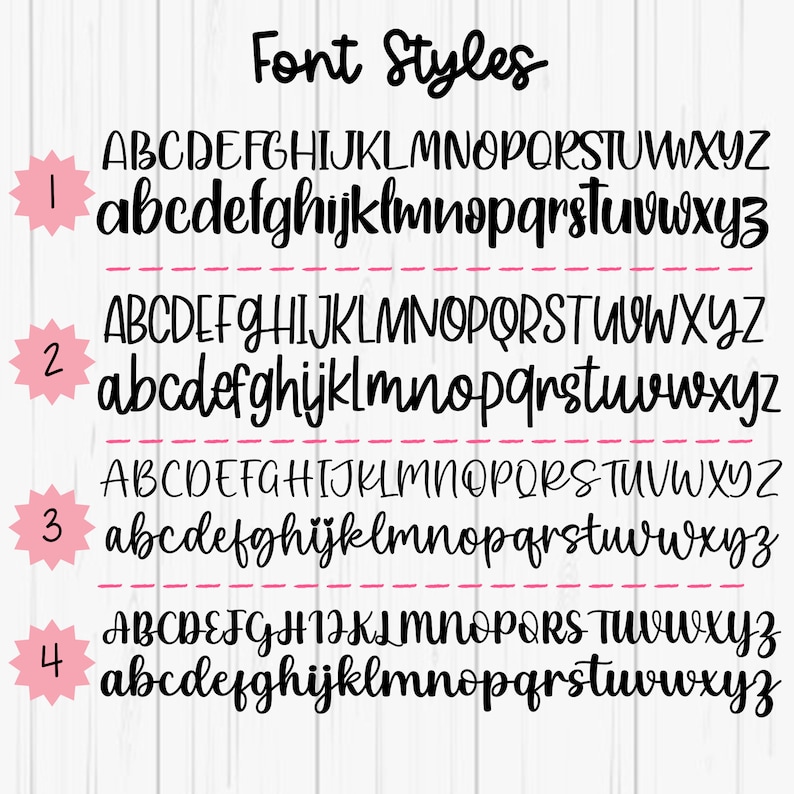 Font Styles
1
ABCDEFGHIJKLMNOPQRSTUVWXYZ
abcdefghijklmnopqrstuvwxyz
2
ABCDEFGHIJKLMNOPQRSTUVWXYZ
abcdefghijklmnopqrstuvwxyz
3
ABCDEFGHIJKLMNOPQRSTUVWXYZ
abcdefghijklmnopqrstuvwxyz
4
ABCDEFGHIJKLMNOPQRSTUVWXYZ
abcdefghijklmnopqrstuvwxyz